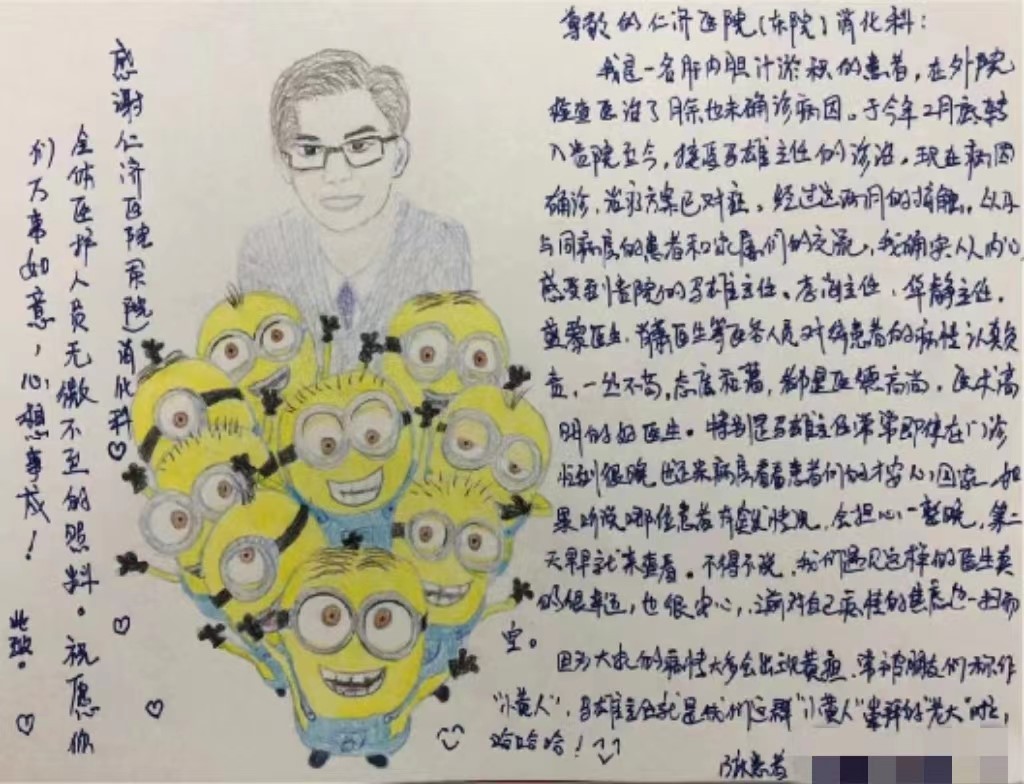 尊敬的仁济医院(东院)消化科:
我是一名肝内胆汁淤积的患者,在外院
检查医治了月余也未确诊病因。于今年2月底转
入贵院至今,接受马雄主任的诊治,现在病因
确诊,治疗方案已对症。经过这两月的接触,以及
与同病房的患者和家属们的交流,我确实从内心
感受到贵院的马雄主任、李海主任、华静主任、
医生、医生等医务人员对待患者的病情认真负
责,一丝不苟,态度和蔼,都是医德高尚,医术高
明的好医生。特别是马雄主任常常即使在门诊
忙到很晚,也还来病房看看患者们的才安心回家,如
果听说哪位患者有突发情况,会担心一整晚,第二
天早早就来查看。不得不说,我们遇见这样的医生真
的很幸运,也很安心,之前对自己病情的焦虑也一扫而
空。
因为大家的病情大多会出现黄疸,常被朋友们称作
"小黄人",马雄主任就是我们这群"小黄人"崇拜的"老大"啦,
哈哈哈!
患者
感谢仁济医院(东院)消化科
全体医护人员无微不至的照料。祝愿你
们万事如意,心想事成!
此致。